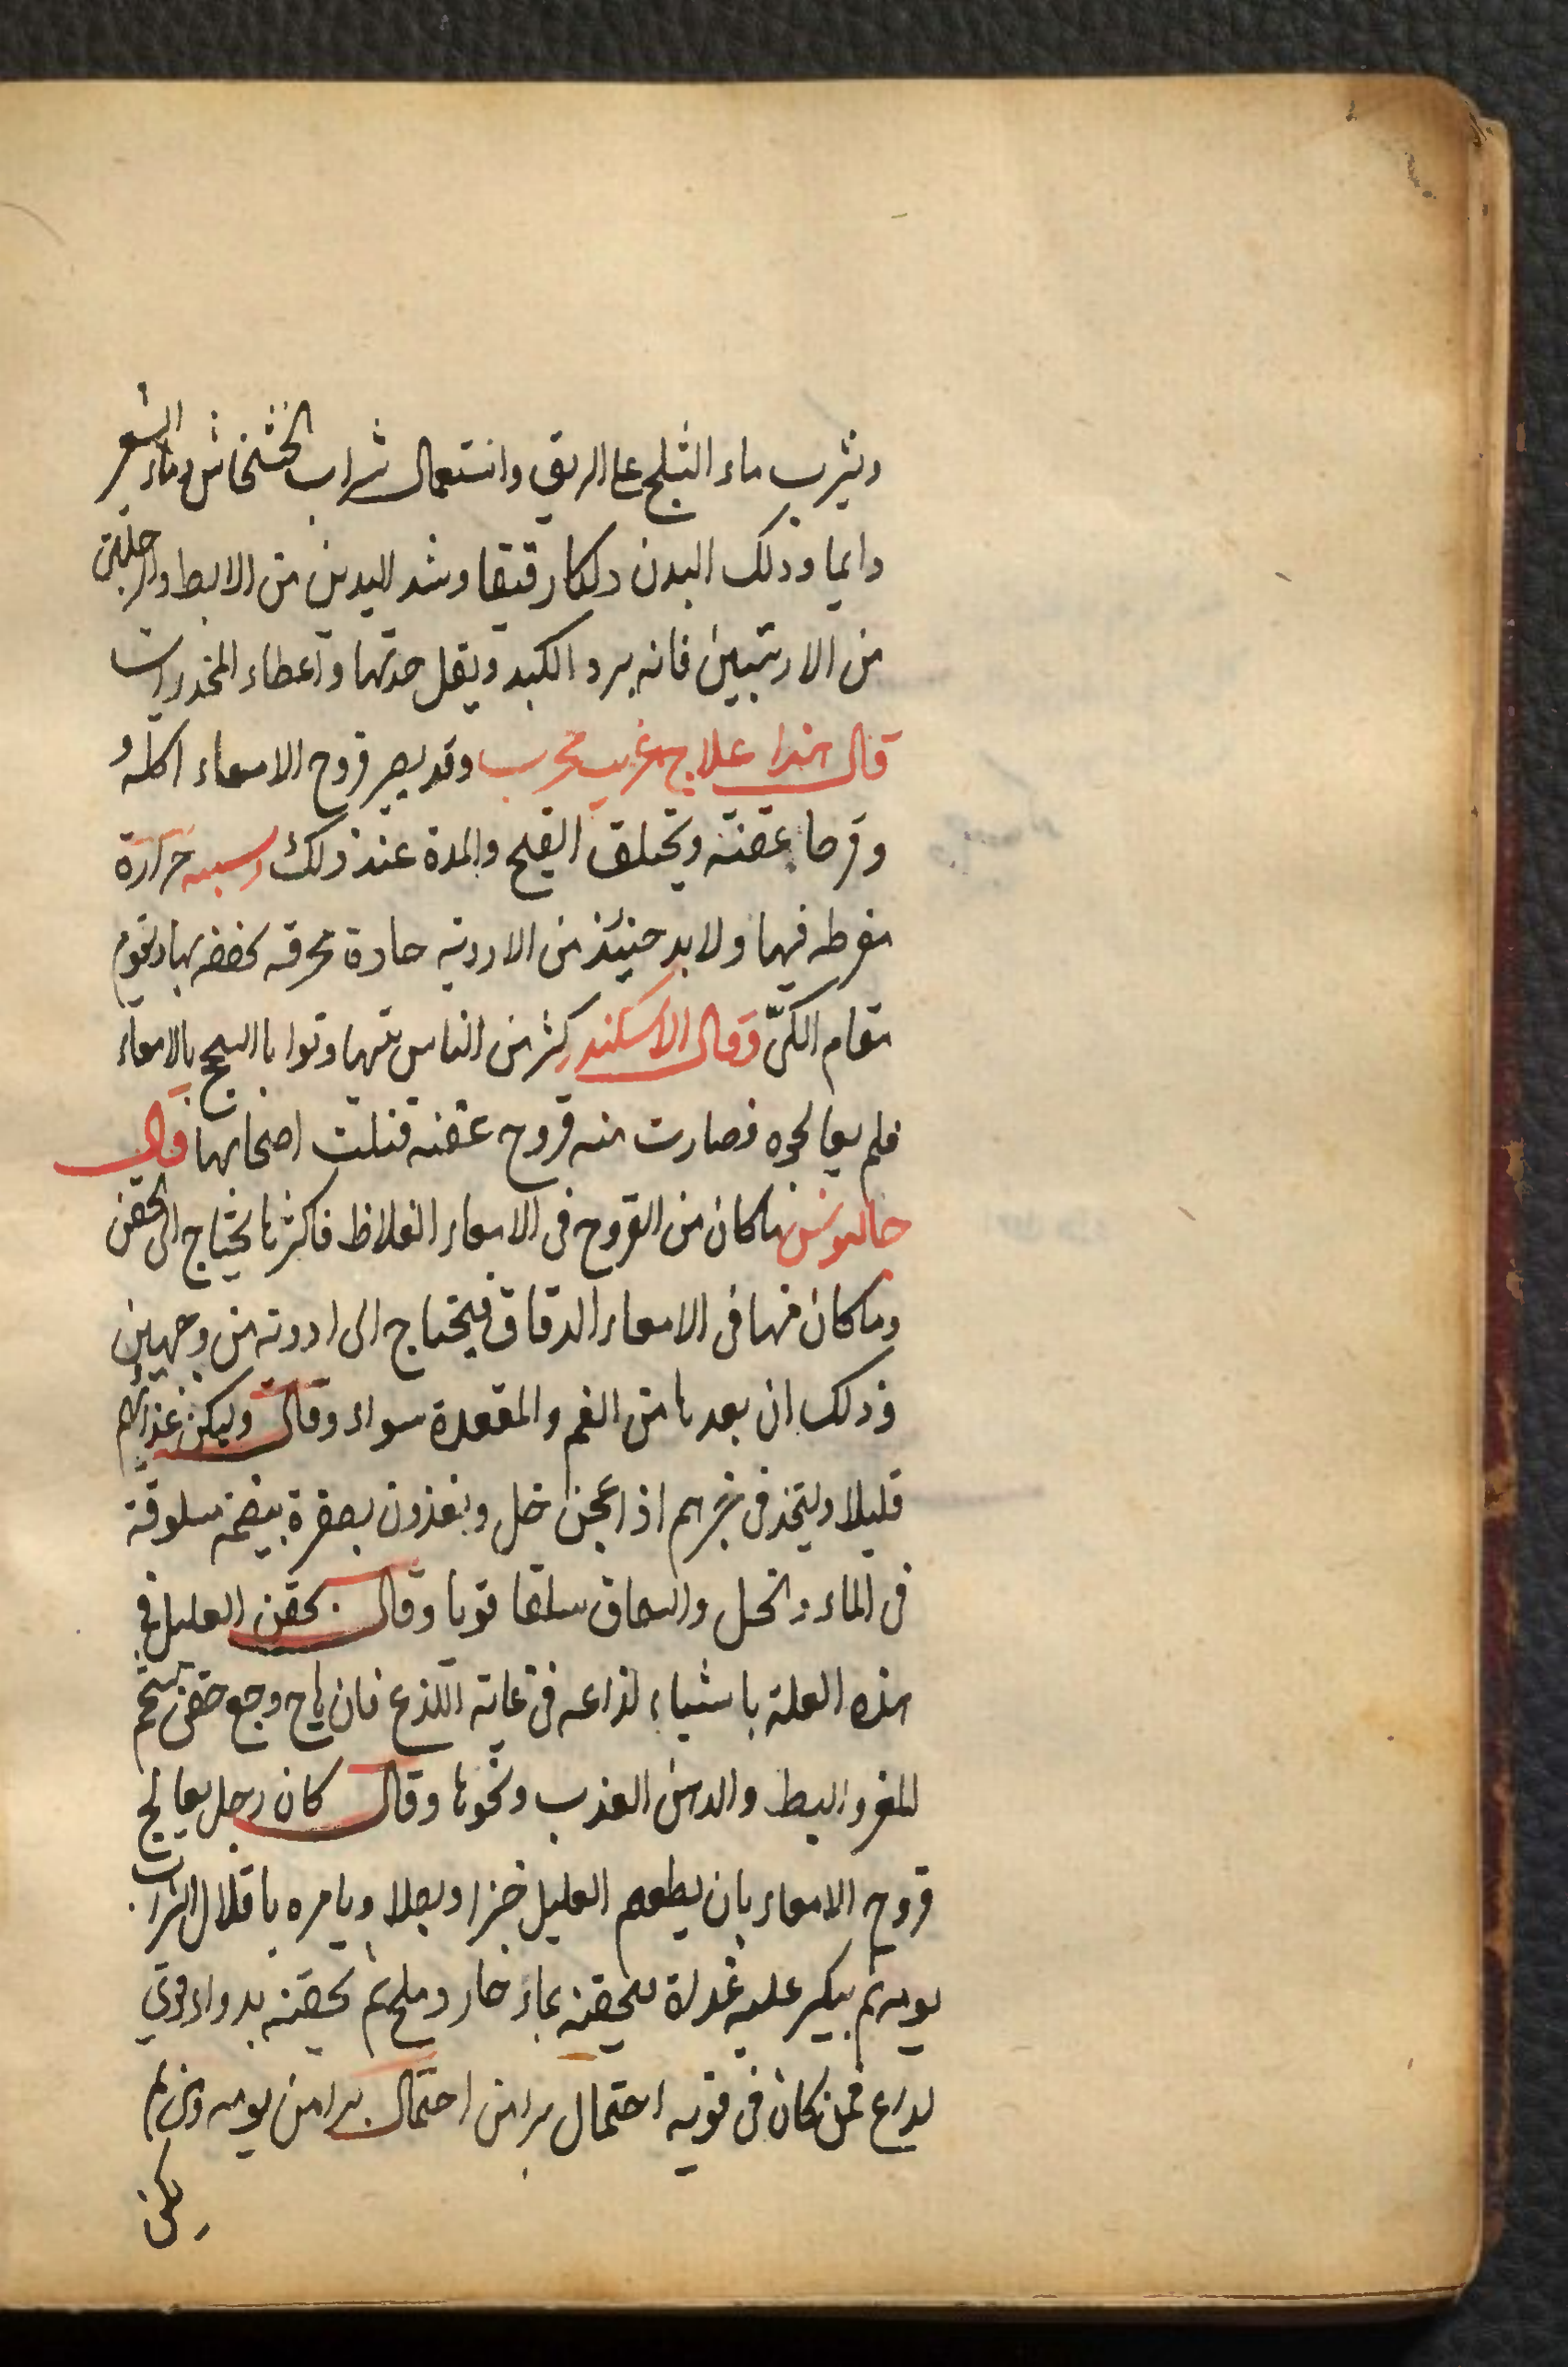 ويشرب ماء الثلج على الريق واستعمال شراب الخشخاش وماء الشعير
دايما ودلك البدن دلكا رقيقا وشد اليدين من الابط والرجلين
من الاربيتين فانه يبرد الكبد ويقل حدتها واعطاء المخدرات
قال هذا علاج غريب مجرب وقد يصير قروح الامعاء اكلة و
وقرحا عفنة ويختلف القيح والمدة عند ذلك وسببه حرارة
مفرطه فيها ولا بد حينئذ من الادويه حادة محرقه يحقنه بها ويقوم
مقام الكىّ وقال الاسكندر كثير من الناس يتهاونوا بالسحج بالامعاء
فلم يعالجوه فصارت منه قروح عفنه قتلت اصحابها قال
جالينوس ما كان من القروح فى الامعاء الغلاظ فاكثرها يحتاج الى الحقن
وما كان منها فى الامعاء الدقاق فيحتاج الى ادويه من وجهين
وذلك ان بعدها من الفم والمقعدة سواء وقال وليكن غذاؤهم
قليلا وليتخذ فى خبزهم اذا عجن خل ويغذون بصفرة بيضة سلوقة
فى الماء والخل والسماق سلقا قويا وقال يحقن العليل فى
هذه العلة باشياء لذاعه فى غاية اللذع فان هاج وجع حقن بشحم
الماعز والبط والدهن العذب ونحوها وقال كان رجل يعالج
قروح الامعاء بان يطعم العليل خبزا وبصلا ويامره باقلال الشراب
يومه ثم يبكر عليه غداة فيحقنه بماء حار وملح ثم يحقنه بدواء قوى
لذاع فمن كان فى قوته احتمال برا من احتمال برا من يومه ومن لم
يكن